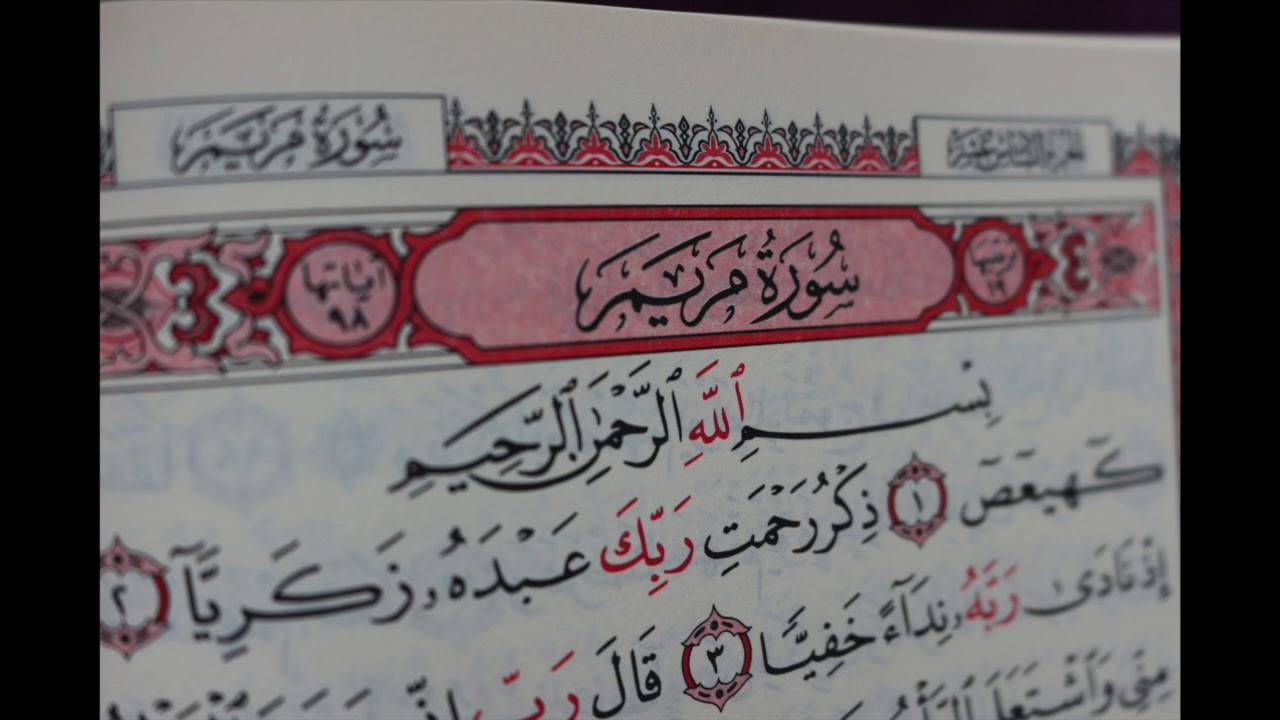 سُورَةُ مَرْيَمَ
الجزء السادس عشر
آياتها ٩٨
سُورَةُ مَرْيَمَ
ترتيبها ١٩
بِسْمِ ٱللَّهِ ٱلرَّحْمَٰنِ ٱلرَّحِيمِ
كٓهيعٓصٓ ١ ذِكْرُ رَحْمَتِ رَبِّكَ عَبْدَهُۥ زَكَرِيَّآ ٢
إِذْ نَادَىٰ رَبَّهُۥ نِدَآءً خَفِيًّا ٣ قَالَ رَبِّ إِنِّ
مِنِّي وَٱشْتَعَلَ ٱلرَّأْسُ